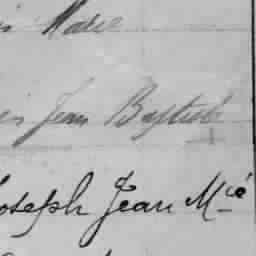 Marie
Jean Baptiste
Joseph Jean M.ié